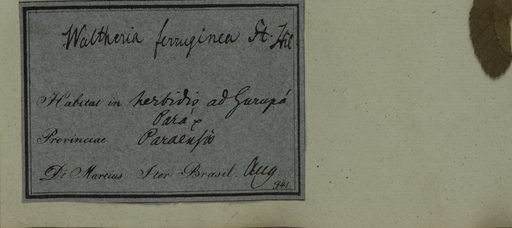 Waltheria ferruginea St. Hil
Habitat in herbidis ad Gurupá
Pará
Provinciae Paraensis
Dr. Martius Iter Brasil. Aug